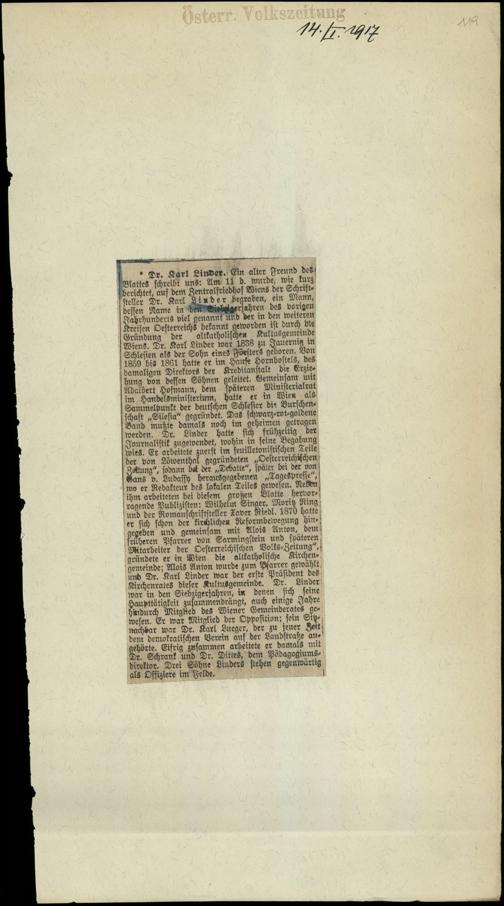 Österr. Volkszeitung
14./I. 1917
119
* Dr. Karl Linder. Ein alter Freund des
Blattes schreibt uns: Am 11 d. wurde, wie kurz
berichtet, auf dem Zentralfriedhof Wiens der Schrift-
steller Dr. Karl Linder begraben, ein Mann,
dessen Name in den Siebzigerjahren des vorigen
Jahrhunderts viel genannt und der in den weiteren
Kreisen Oesterreichs bekannt geworden ist durch die
Gründung der altkatholischen Kultusgemeinde
Wiens. Dr. Karl Linder war 1838 zu Jauernig in
Schlesien als der Sohn eines Försters geboren. Von
1859 bis 1861 hatte er im Hause Hornbostels, des
damaligen Direktors der Kreditanstalt die Erzie-
hung von dessen Söhnen geleitet. Gemeinsam mit
Adalbert Hofmann, dem späteren Ministerialrat
im Handelsministerium, hatte er in Wien als
Sammelpunkt der deutschen Schlesier die Burschen-
schaft „Silesia" gegründet. Das schwarz-rot-goldene
Band mußte damals noch im geheimen getragen
werden. Dr. Linder hatte sich frühzeitig der
Journalistik zugewendet, wohin in seine Begabung
wies. Er arbeitete zuerst im feuilletonistischen Teile
der von Löwenthal gegründeten „Oesterreichischen
Zeitung", sodann bei der „Debatte", später bei der von
Hans v. Ludassy herausgegebenen „Tagespresse",
wo er Redakteur des lokalen Teiles gewesen. Neben
ihm arbeiteten bei diesem großen Blatte hervor-
ragende Publizisten: Wilhelm Singer, Moritz Ring
und der Romanschriftsteller Xaver Riedl. 1870 hatte
er sich schon der kirchlichen Reformbewegung hin-
gegeben und gemeinsam mit Alois Anton, dem
früheren Pfarrer von Sarmingstein und späteren
Mitarbeiter der Oesterreichischen Volks-Zeitung",
gründete er in Wien die altkatholische Kirchen-
gemeinde; Alois Anton wurde zum Pfarrer gewählt
und Dr. Karl Linder war der erste Präsident des
Kirchenrates dieser Kultusgemeinde. Dr. Linder
war in den Siebzigerjahren, in denen sich seine
Haupttätigkeit zusammendrängt, auch einige Jahre
hindurch Mitglied des Wiener Gemeinderates ge-
wesen. Er war Mitglied der Opposition; sein Sitz-
nachbar war Dr. Karl Lueger, der zu jener Zeit
dem demokratischen Verein auf der Landstraße an-
gehörte. Eifrig zusammen arbeitete er damals mit
Dr. Schrank und Dr. Dittes, dem Pädagogiums-
direktor. Drei Söhne Linders stehen gegenwärtig
als Offiziere im Felde.